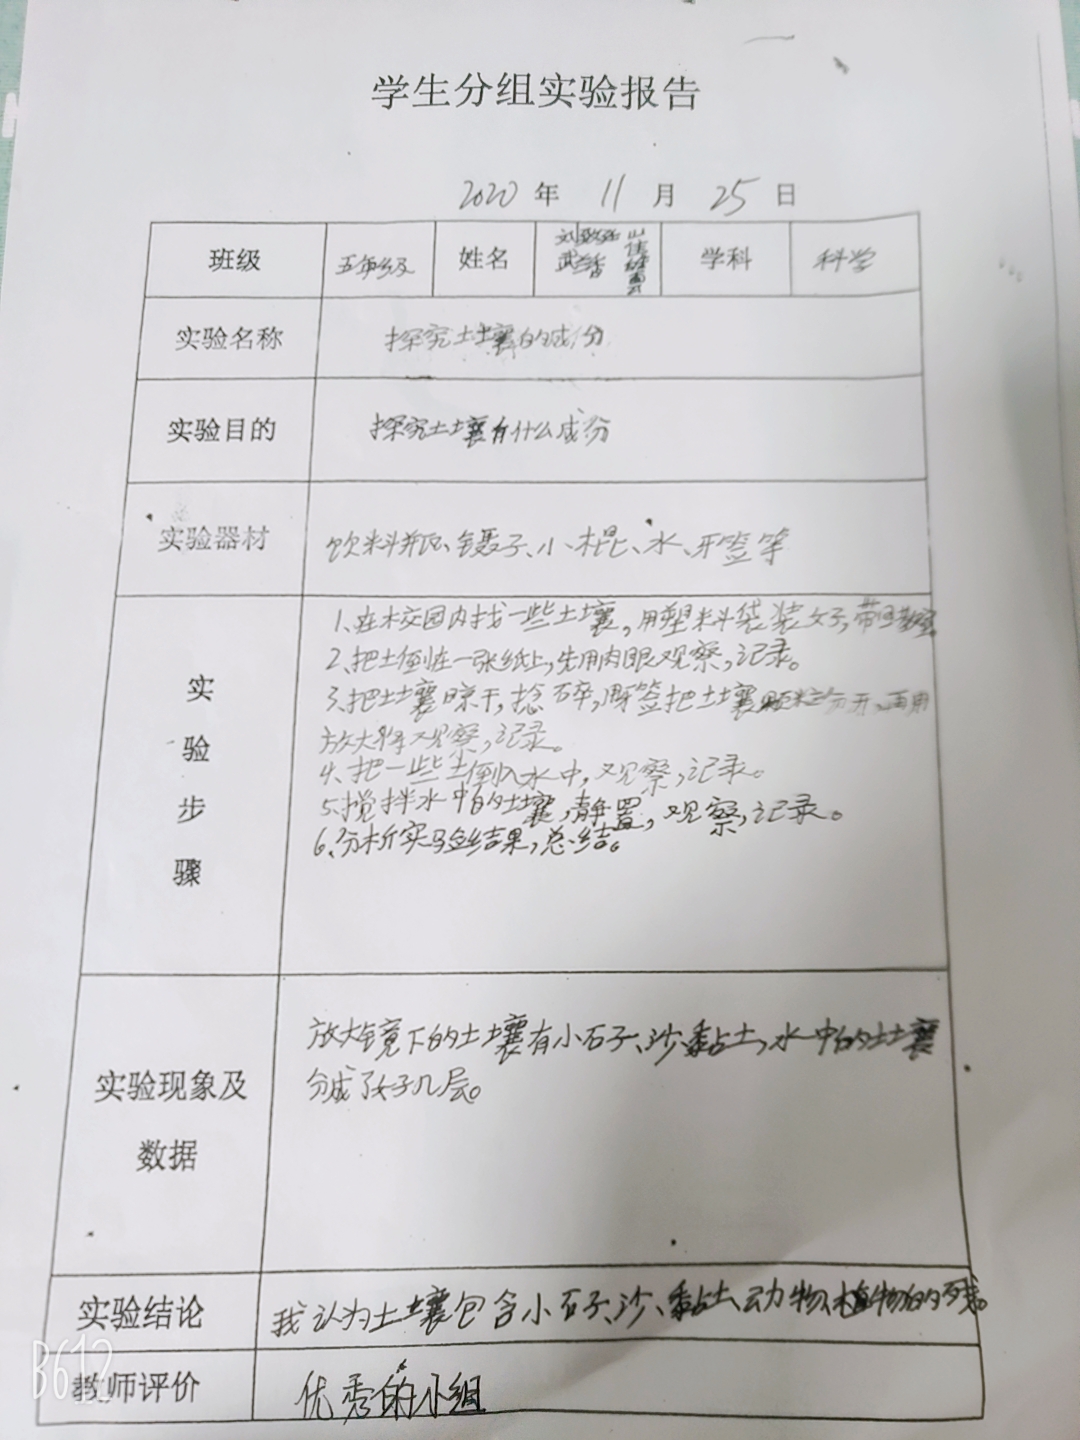 学生分组实验报告
2020 年 11 月 25 日
班级 五年级 姓名 学科 科学
实验名称 探究土壤的成分
实验目的 探究土壤有什么成分
实验器材 饮料瓶、镊子、小棍、水、牙签等
实验步骤
1、在校园内找一些土壤,用塑料袋装好,带回教室。
2、把土倒在一张纸上,先用肉眼观察,记录。
3、把土壤晾干,捻碎,用牙签把土壤颗粒分开,再用
放大镜观察,记录。
4、把一些土倒入水中,观察,记录。
5、搅拌水中的土壤,静置,观察,记录。
6、分析实验结果,总结。
实验现象及数据
放大镜下的土壤有小石子、沙、黏土,水中的土壤
分成了好几层。
实验结论 我认为土壤包含小石子、沙、黏土、动物、植物的残
教师评价 优秀的小组
B612